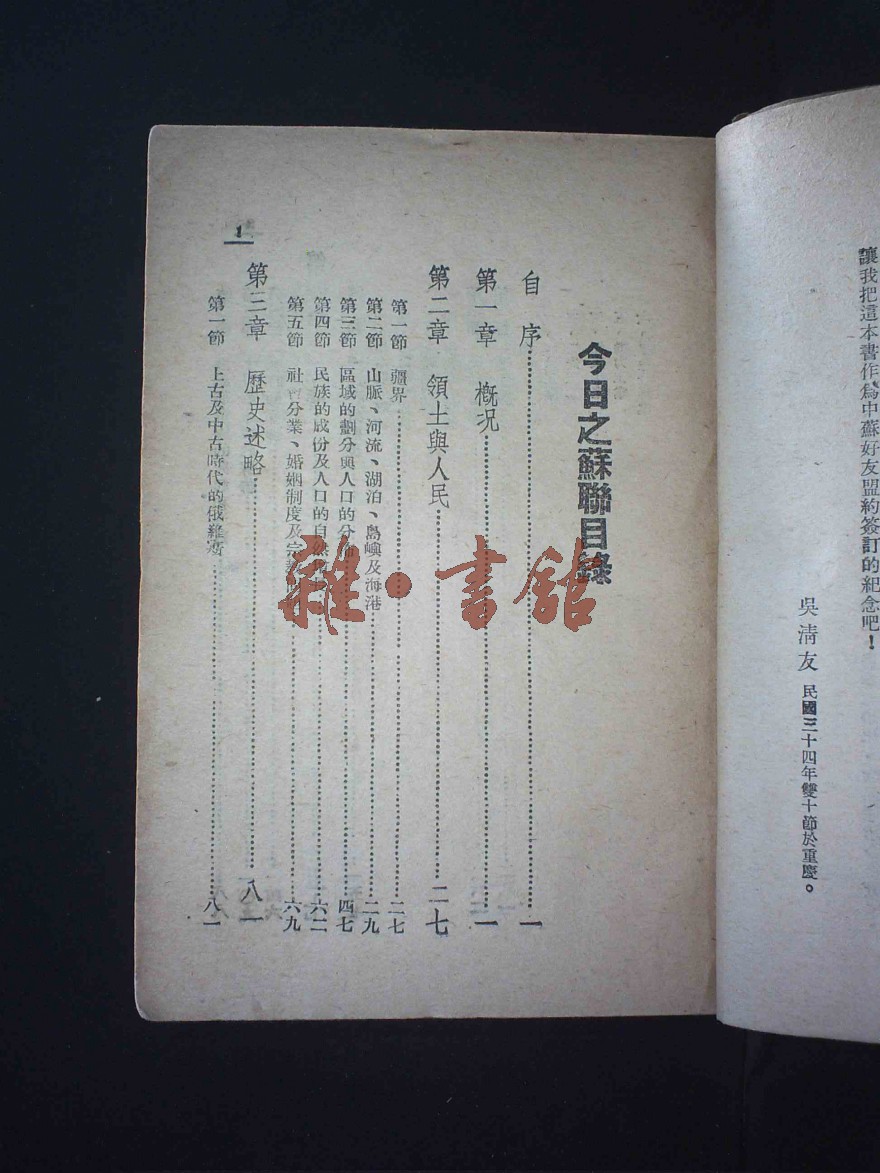 讓我把這本書作爲中蘇好友盟約簽訂的紀念吧！
吳清友 民國三十四年雙十節於重慶。
今日之蘇聯目錄
自序……一
第一章 概況……一
第二章 領土與人民……二七
第一節 疆界……二七
第二節 山脈、河流、湖泊、島嶼及海港……二九
第三節 區域的劃分與人口的分……四七
第四節 民族的成份及人口的自然……六二
第五節 社會分業、婚姻制度及宗……六九
第三章 歷史述略……八一
第一節 上古及中古時代的俄羅斯……八一
1
雜·書舘